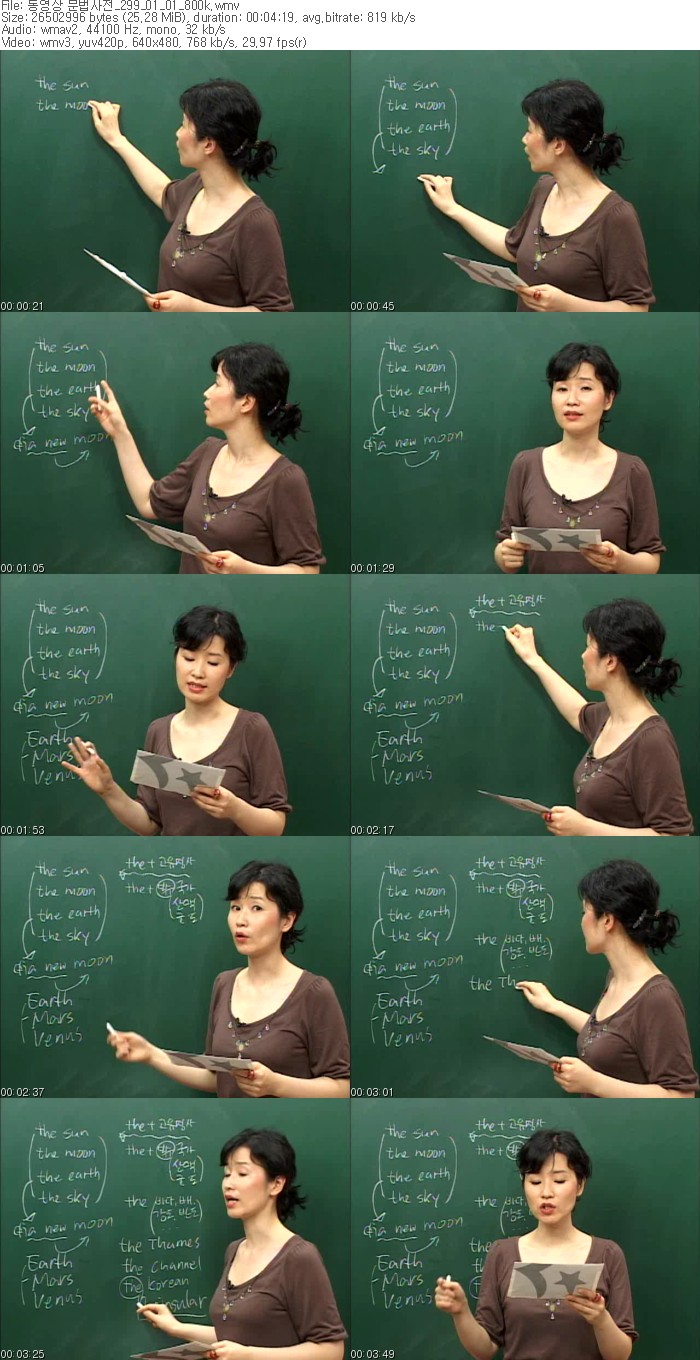 File: 동영상 문법사전_299_01_01_800k.wmv
Size: 26502996 bytes (25.28 MiB), duration: 00:04:19, avg.bitrate: 819 kb/s
Audio: wmav2, 44100 Hz, mono, 32 kb/s
Video: wmv3, yuv420p, 640x480, 768 kb/s, 29.97 fps(r)
the sun
the moon
00:00:21
the sun
the moon
the earth
the sky
00:00:45
the sun
the moon
the earth
the sky
a new moon
00:01:05
the sun
the moon
the earth
the sky
a new moon
00:01:29
the sun
the moon
the earth
the sky
a new moon
Earth
Mars
Venus
00:01:53
the sun
the moon
the earth
the sky
a new moon
Earth
Mars
Venus
the + 고유명사
the
00:02:17
the sun
the moon
the earth
the sky
a new moon
Earth
Mars
Venus
the + 고유명사
the + 복수 국가
산맥
군도
00:02:37
the sun
the moon
the earth
the sky
a new moon
Earth
Mars
Venus
the + 고유명사
the + 복수 국가
산맥
군도
the 바다, 배,
강, 반도
the Th
00:03:01
the sun
the moon
the earth
the sky
a new moon
Earth
Mars
Venus
the + 고유명사
the + 국가
산맥
군도
the 바다, 배,
반도
the Thames
the channel
the Korean
00:03:25
the sun
the moon
the earth
the sky
a new moon
Earth
Mars
Venus
the + 고유명사
the +
the 바다, 배,
the
00:03:49